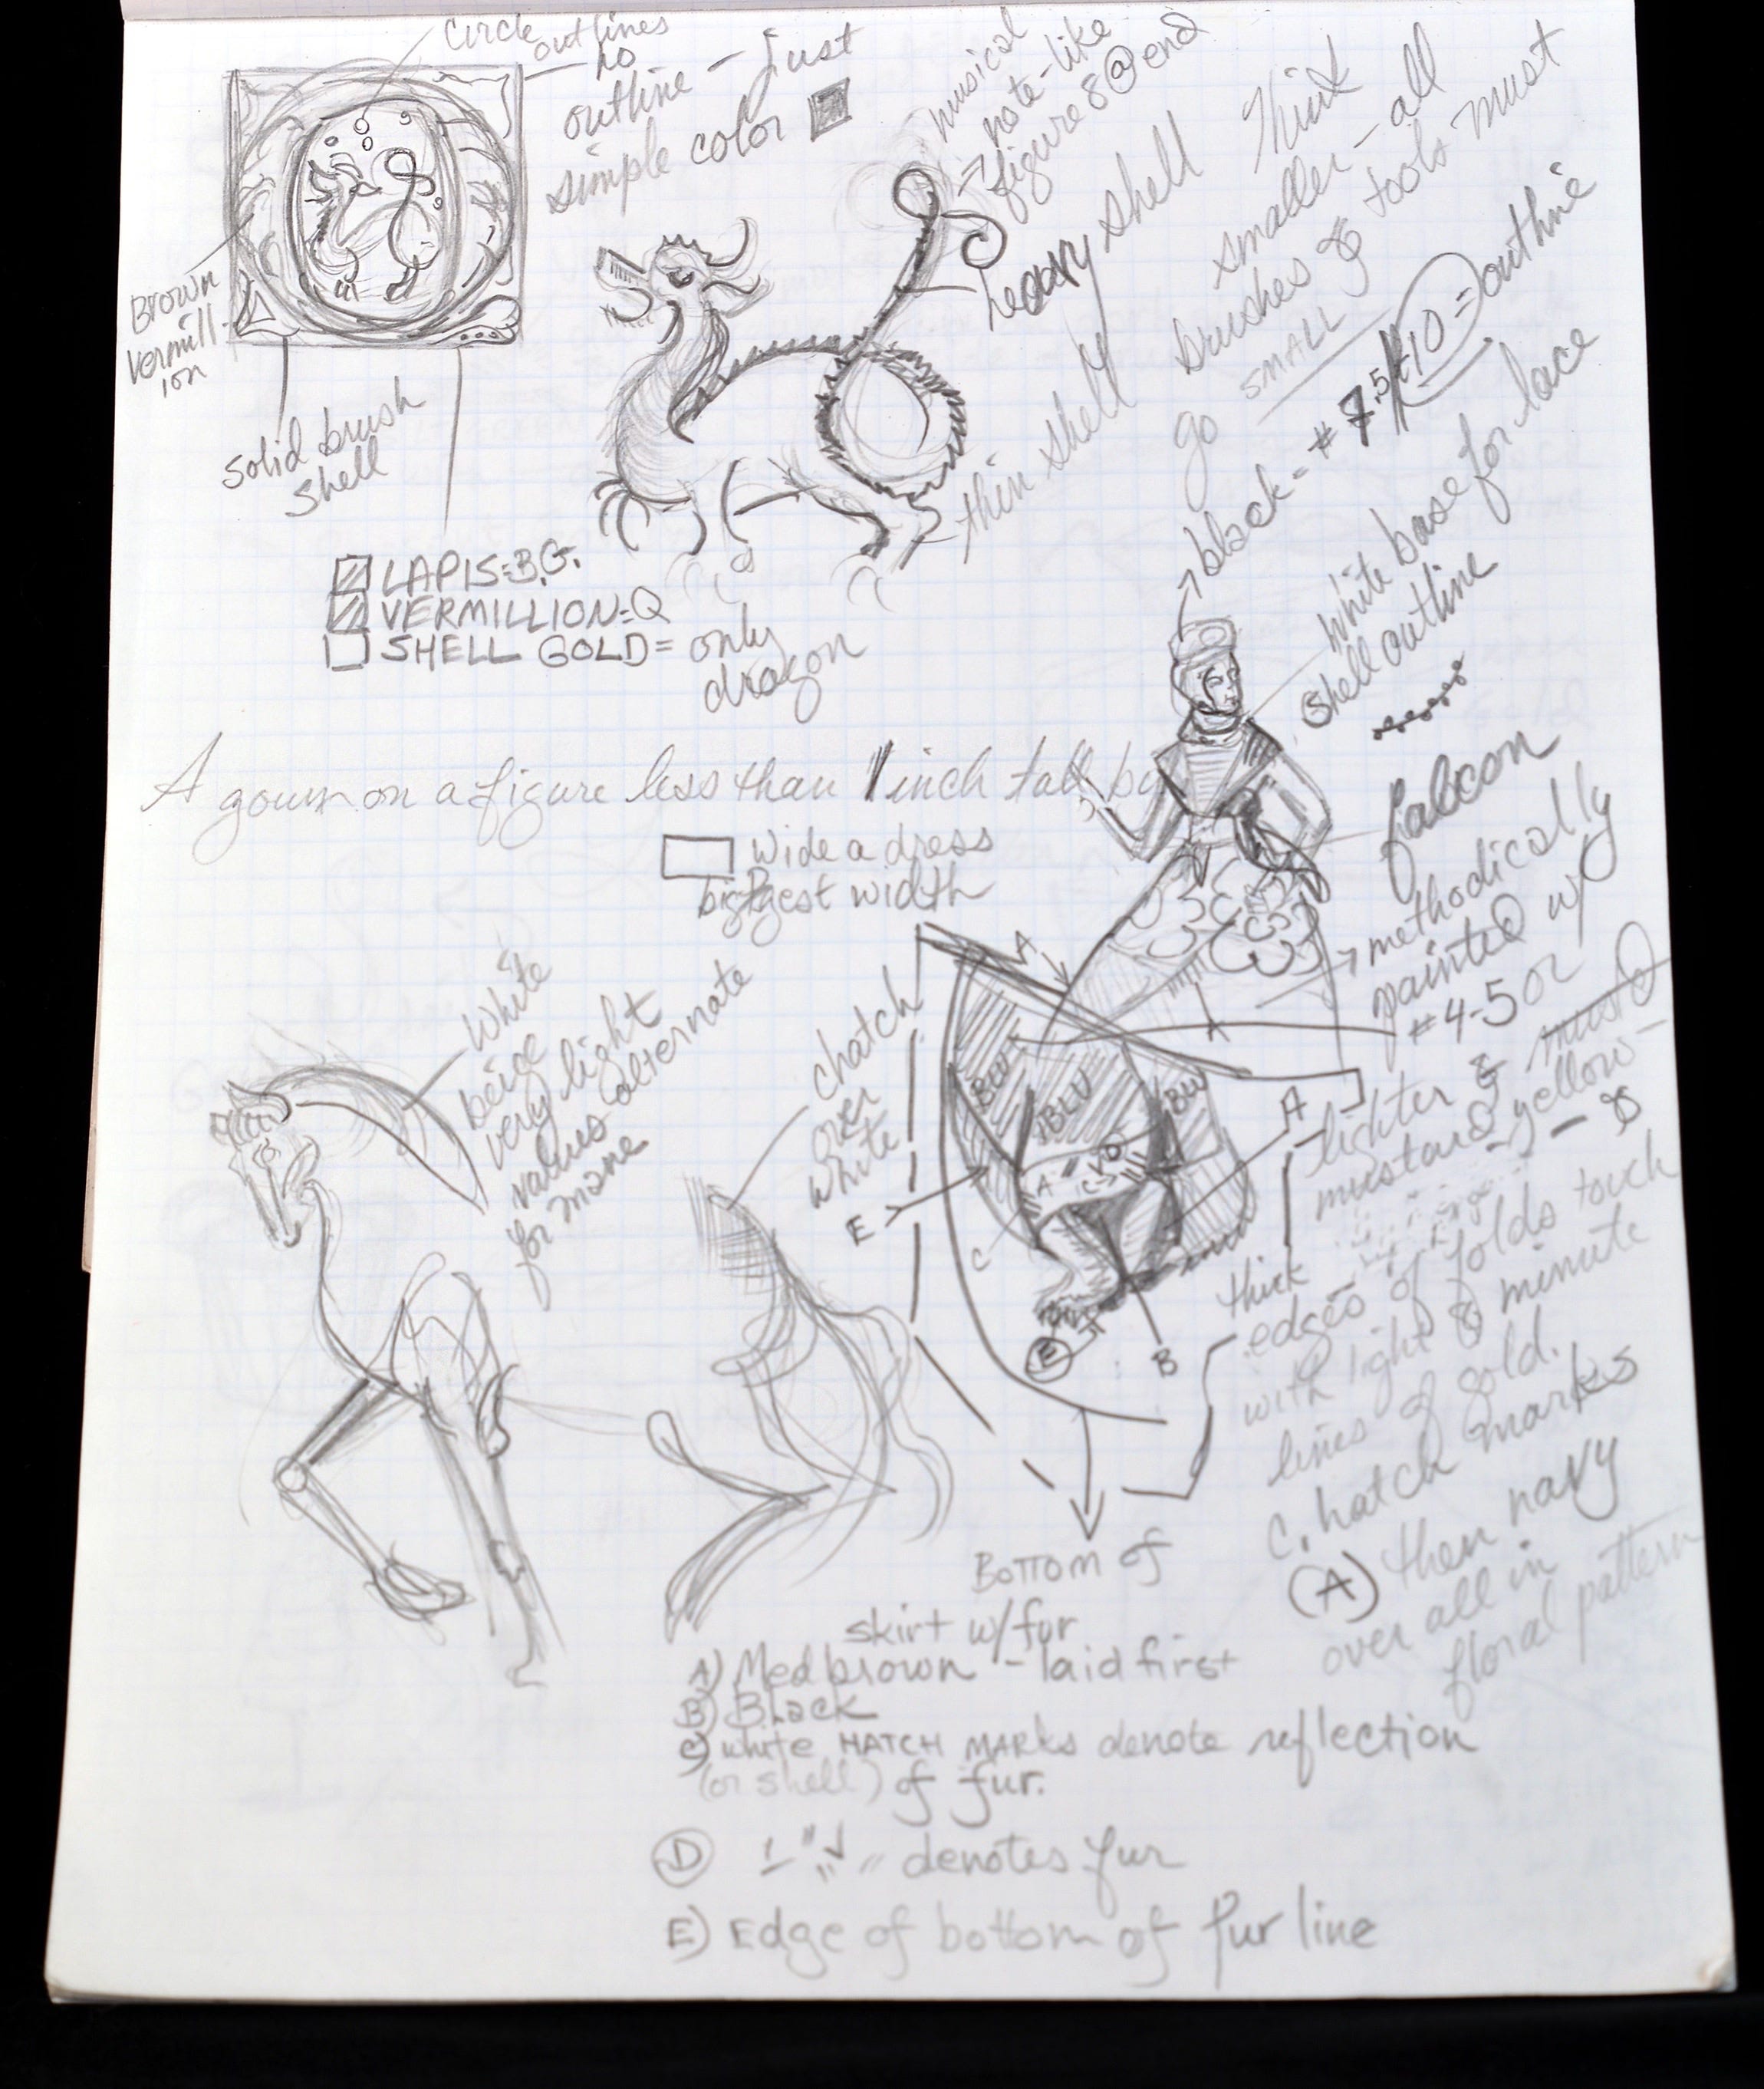 Circle outlines
no
outline - just
simple color
musical
note-like
figure 8 @ end
heavy shell
thin shell
Think
smaller - all
brushes & tools must
go SMALL
Brown
Vermill-
ion
solid brush
shell
LAPIS=B.G.
VERMILLION=Q
SHELL GOLD= only
dragon
black = # 7.5/10 = outline
White base for lace
shell outline
A gown on a figure less than 1 inch tall by
Wide a dress
biggest width
falcon
methodically
painted w/
#4-5 or
lighter & mustd
mustard yellow -
White
beige
very light
values alternate
for mane
chatch
over
white
A
A
BLU
BLU
BLU
A
A
D
C
E
C
E
B
thick
edges of folds touch
with light & minute
lines of gold.
C. hatch marks
(A) then navy
over all in
floral pattern
Bottom of
skirt w/fur
A) Med brown - laid first
B) Black
C) white HATCH MARKS denote reflection
(or shell) of fur.
D denotes fur
E) Edge of bottom of fur line